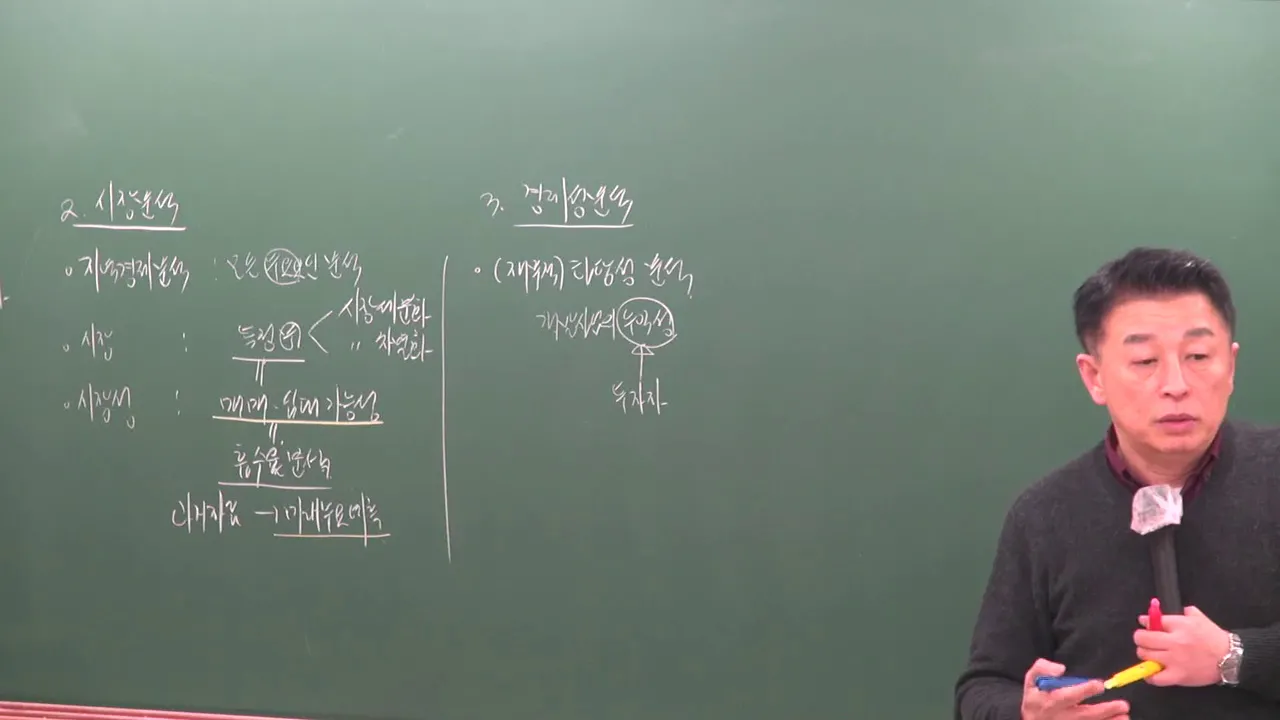 2. 시장분석
• 지역경제분석 : 모든 수요요인 분석
• 시장 : 특정 부 < 시장세분화
〃 차별화
• 시장성 : 매매·임대 가능성
〃
흡수율 분석
과거자료 → 미래수요예측
3. 경제성분석
• (재무적) 타당성 분석
개발사업의 수익성
투자자